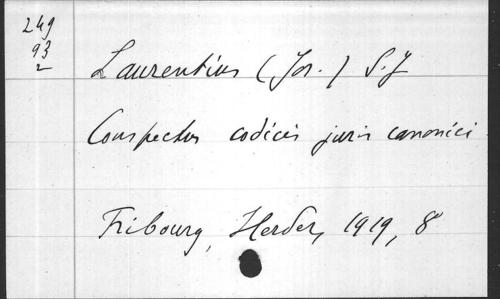 249
93
2
Laurentius (Jos.) S.J
Conspectus codicis juris canonici
Fribourg, Herder, 1919, 8°